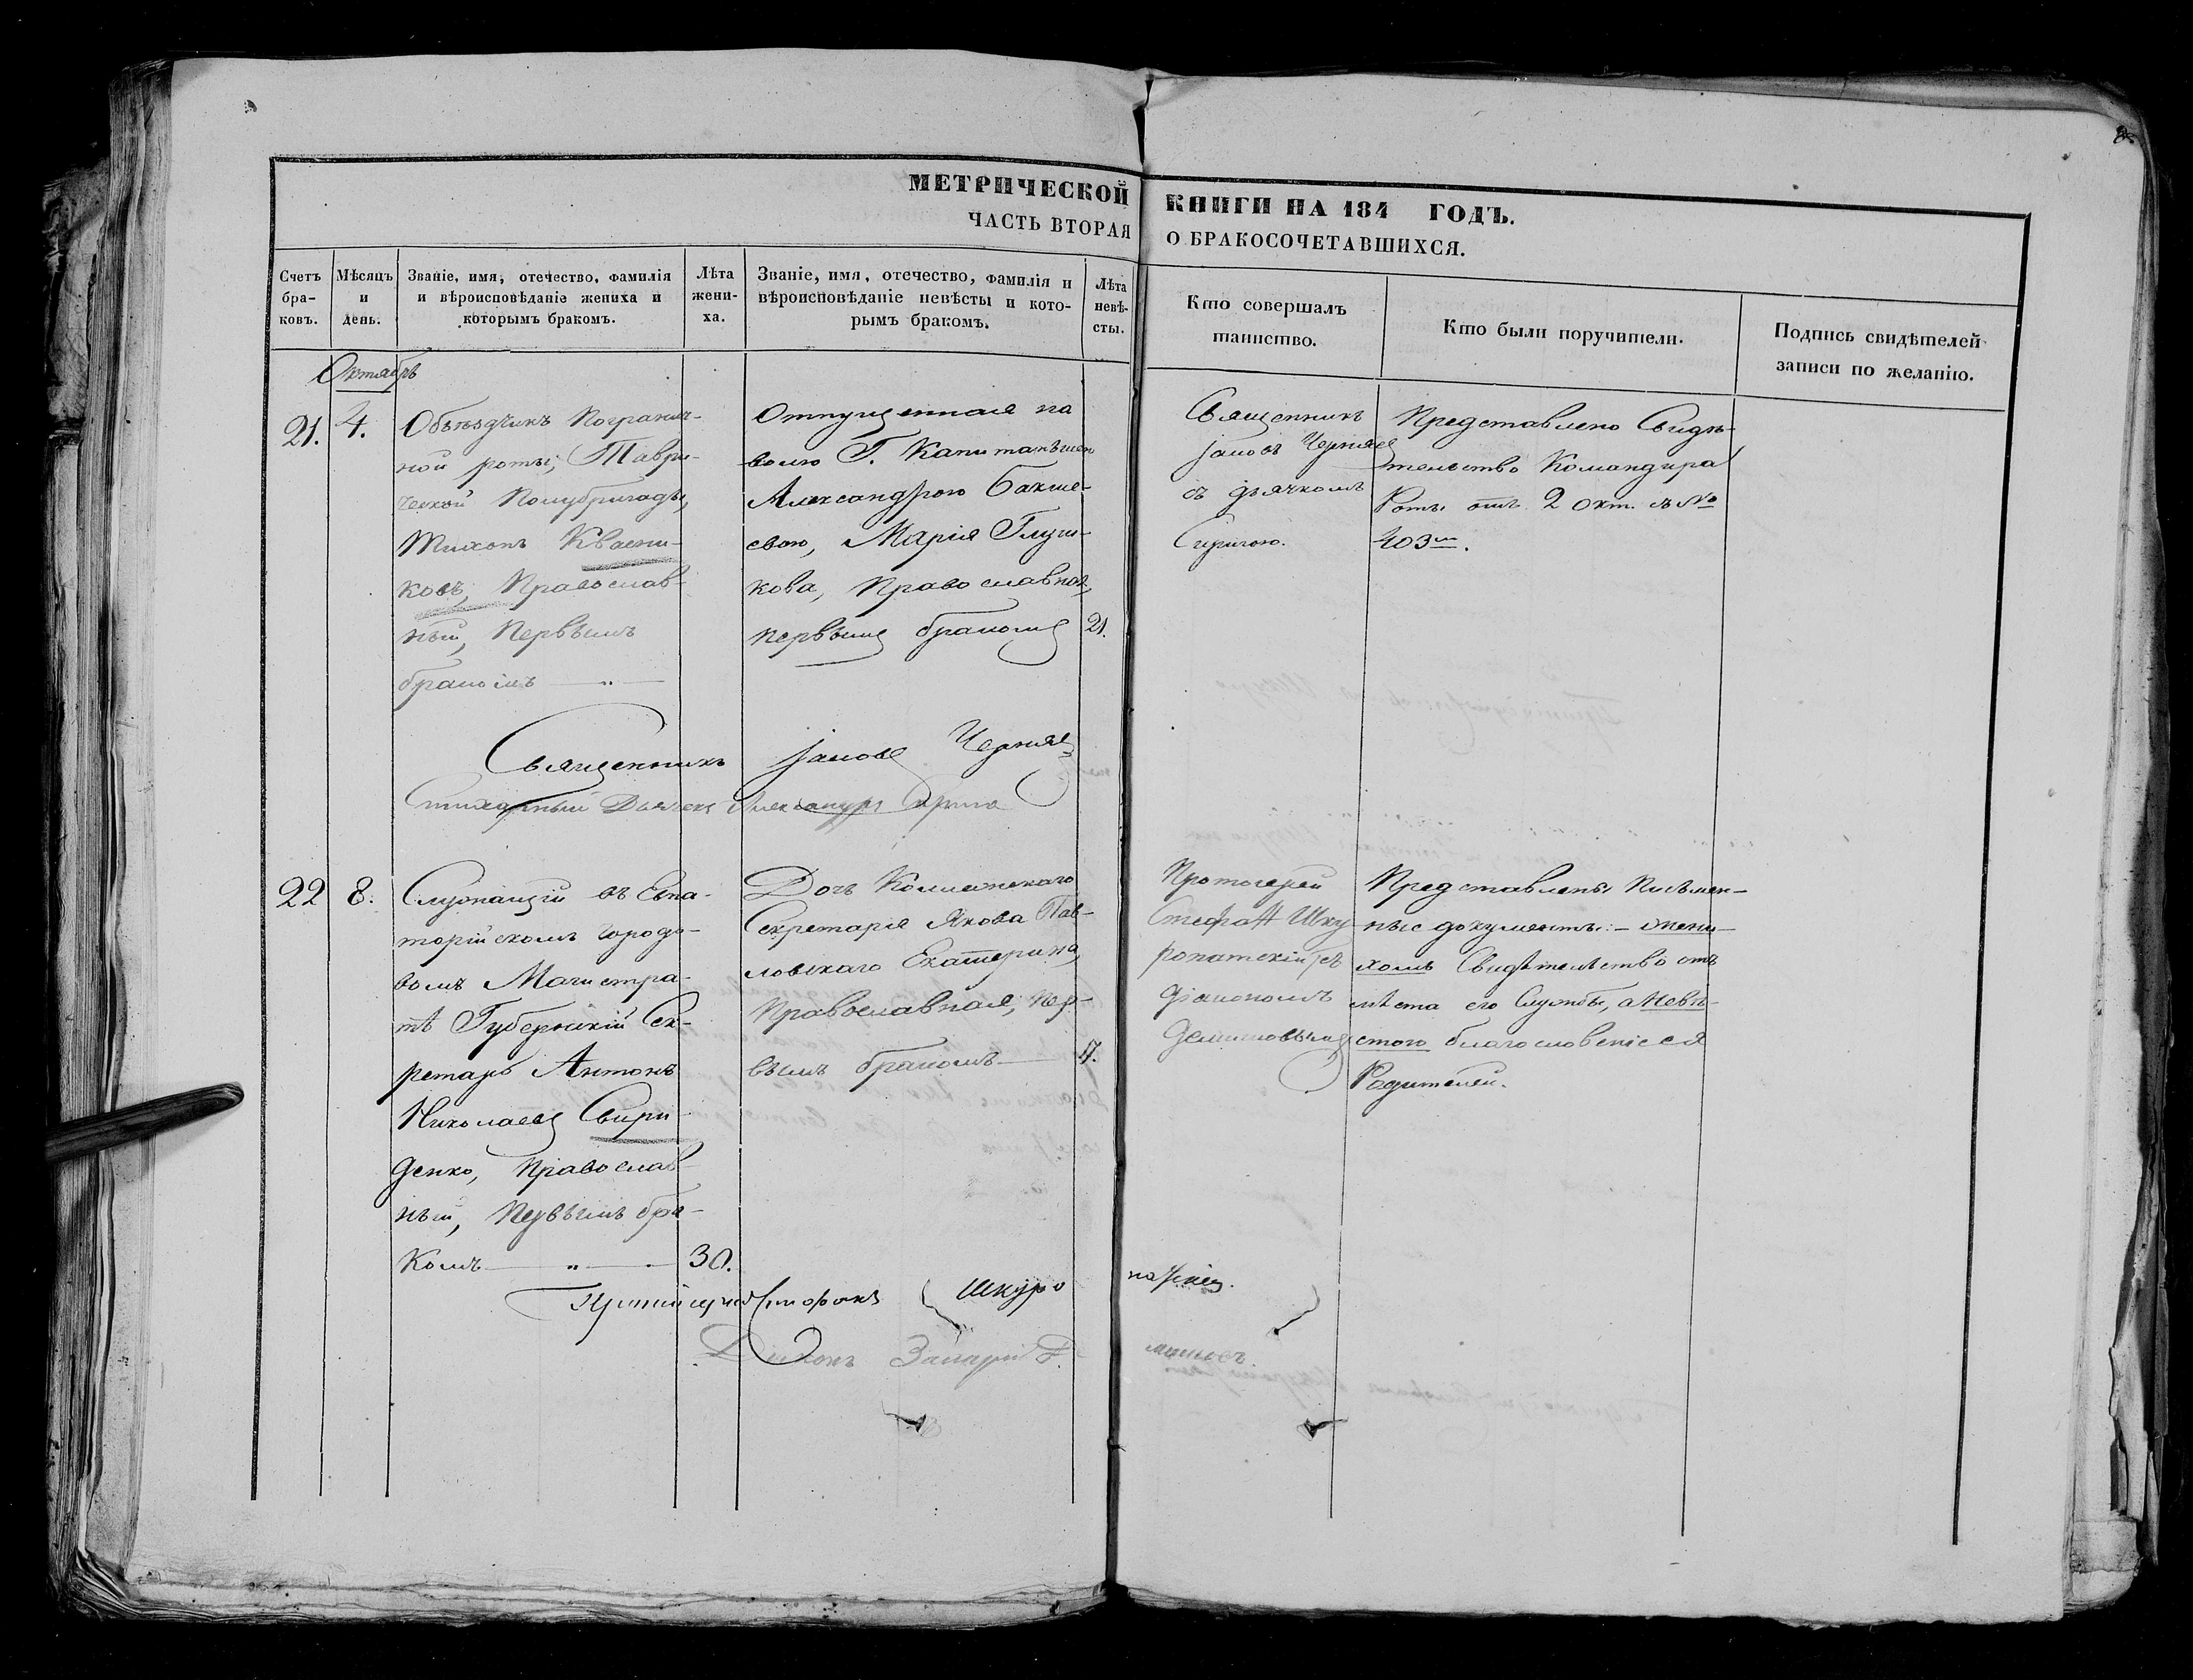 МЕТРИЧЕСКОЙ КНИГИ НА 184 ГОДЪ.
ЧАСТЬ ВТОРАЯ О БРАКОСОЧЕТАВШИХСЯ.
Счетъ бра-ковъ.
Мѣсяцъ и день.
Званіе, имя, отечество, фамилія
и вѣроисповѣданіе жениха и
которымъ бракомъ.
Лѣта жени-ха.
Званіе, имя, отечество, фамилія и
вѣроисповѣданіе невѣсты и кото-
рымъ бракомъ.
Лѣта невѣ-сты.
Кто совершалъ
таинство.
Кто были поручители.
Подпись свидѣтелей
записи по желанію.
Октябрь
21. 4.
Объѣздчикъ Погранич-
ной роты, Таври-
ческой Полубригады,
Тихонъ Квасни-
ковъ, Православ-
ный, Первымъ
бракомъ
Отпущенная на
волю Г. Капитаншею
Александрою Бакше-
евою, Марія Глуш-
кова, Православная,
первымъ бракомъ 21.
Священникъ
Іаковъ Черняев
съ дьячкомъ
Сиригою.
Представлено Свидѣ-
тельство Командира
Роты отъ 2 окт. за №
403м.
Священникъ Іаковъ Черняев
Стихарный Дьячекъ Александръ Сирига
22 8.
Служащій въ Евпа-
торійскомъ Городо-
вомъ Магистра-
тѣ Губернскій Сек-
ретарь Антонъ
Николаевъ Свири-
денко, Православ-
ный, Первымъ бра-
комъ 30.
Дочь Коллежскаго
Секретаря Якова Пав-
ловскаго Екатерина,
Православная, пер-
вымъ бракомъ
Протоіерей
Стефанъ Шку
ропатскій съ
діакономъ
Представлены Письмен-
ные документы: – жени-
хомъ Свидѣтельство отъ
мѣста его Службы, а Невѣ-
стою благословеніе ея
Родителей.
Протоіерей Стефанъ Шкуро патскій.
Діаконъ Захарій